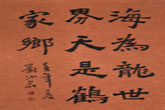 海為龍世
界天是鶴
家鄉